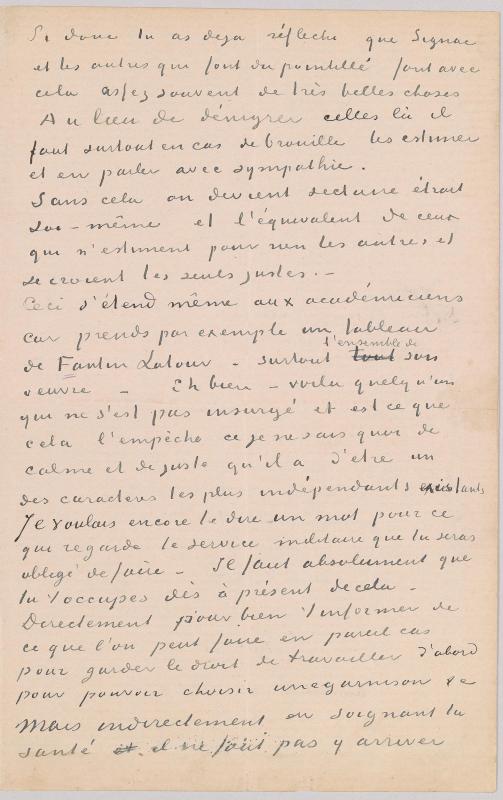 Si donc tu as deja réflechi que Signac
et les autres qui font du pointillé font avec
cela assez souvent de très belles choses
Au lieu de dénigrer celles là il
faut surtout en cas de brouille les estimer
et en parler avec sympathie.
Sans cela on devient sectaire étroit
soi-même et l'équivalent de ceux
qui n'estiment pour rien les autres et
se croient les seuls justes. —
Ceci s'étend même aux académiciens
car prends par exemple un tableau
de Fantin Latour - surtout tout l'ensemble de son
oeuvre - Eh bien - voila quelqu'un
qui ne s'est pas insurgé et est ce que
cela l'empêche ce je ne sais quoi de
calme et de juste qu'il a d'etre un
des caractères les plus indépendants existants
Je voulais encore te dire un mot pour ce
qui regarde le service militaire que tu seras
obligé de faire - Il faut absolument que
tu t'occupes dès à présent de cela -
Directement pour bien t'informer de
ce que l'on peut faire en pareil cas
pour garder le droit de travailler d'abord
pour pouvoir choisir une garnison &c
Mais indirectement en soignant ta
santé et il ne faut pas y arriver